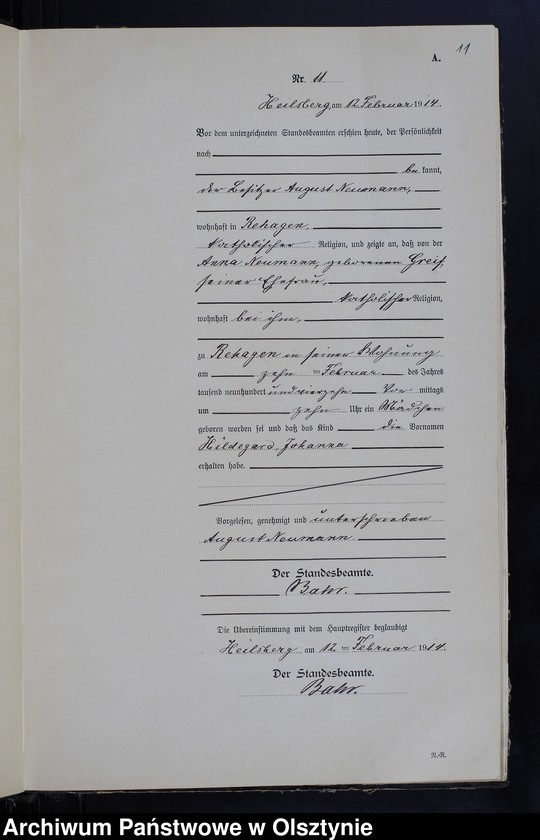 11
A.
Nr. 11.
Heilsberg, am 12. Februar 1914.
Vor dem unterzeichneten Standesbeamten erschien heute, der Persönlichkeit
nach
be kannt,
der Besitzer August Neumann,
wohnhaft in Rehagen,
katholischer Religion, und zeigte an, daß von der
Anna Neumann, geborenen Greif,
seiner Ehefrau,
katholischer Religion,
wohnhaft bei ihm,
zu Rehagen in seiner Wohnung
am zehn ten Februar des Jahres
tausend neunhundert und vierzehn Vor mittags
um zehn Uhr ein Mädchen
geboren worden sei und daß das Kind die Vornamen
Hildegard, Johanna
erhalten habe.
Vorgelesen, genehmigt und unterschrieben
August Neumann.
Der Standesbeamte.
Bahr.
Die Übereinstimmung mit dem Hauptregister beglaubigt
Heilsberg am 12. ten Februar 1914.
Der Standesbeamte.
Bahr.
N.-R.
Archiwum Państwowe w Olsztynie